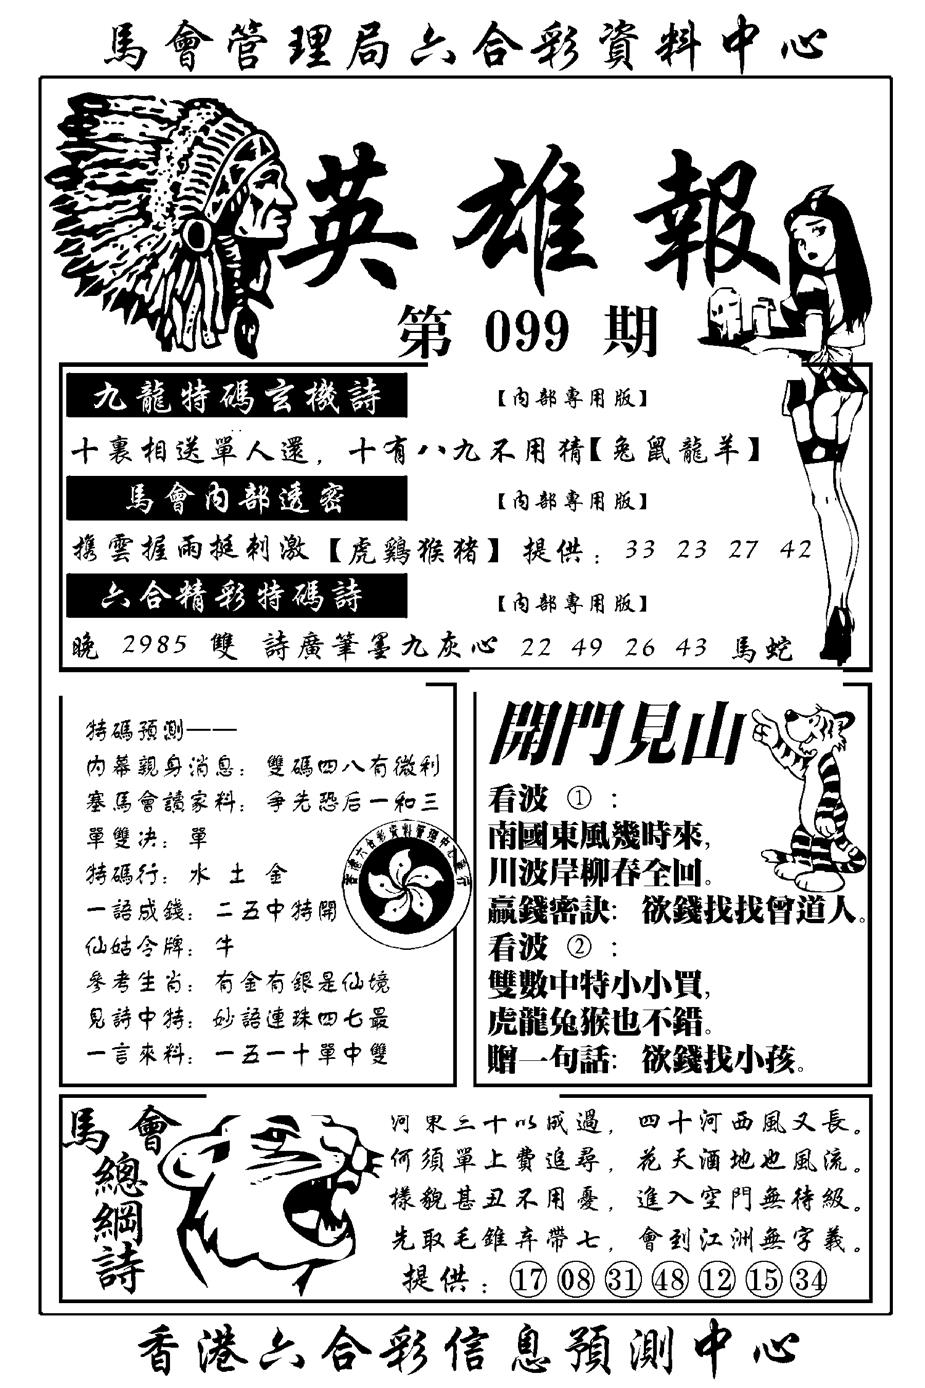 馬會管理局六合彩資料中心
英雄報
第 099 期
九龍特碼玄機詩 【內部專用版】
十裏相送單人還，十有八九不用猜【兔鼠龍羊】
馬會內部透密 【內部專用版】
攜雲握雨挺刺激【虎鷄猴猪】提供：33 23 27 42
六合精彩特碼詩 【內部專用版】
晚 2985 雙 詩廣筆墨九灰心 22 49 26 43 馬蛇
特碼預測——
內幕親身消息：雙碼四八有微利
塞馬會讀家料：爭先恐后一和三
單雙决：單
特碼行：水 土 金
一語成錢：二五中特開
仙姑令牌：牛
參考生肖：有金有銀是仙境
見詩中特：妙語連珠四七最
一言來料：一五一十單中雙
香港六合彩資料管理中心發行
開門見山
看波 ①：
南國東風幾時來，
川波岸柳春全回。
贏錢密訣：欲錢找找曾道人。
看波 ②：
雙數中特小小買，
虎龍兔猴也不錯。
贈一句話：欲錢找小孩。
馬會
總綱詩
河東三十以成過，四十河西風又長。
何須單上費追尋，花天酒地也風流。
樣貌甚丑不用憂，進入空門無待級。
先取毛錐弃帶七，會到江洲無字義。
提供：⑰ 08 ㉛ ㊽ ⑫ ⑮ ㉞
香港六合彩信息預測中心